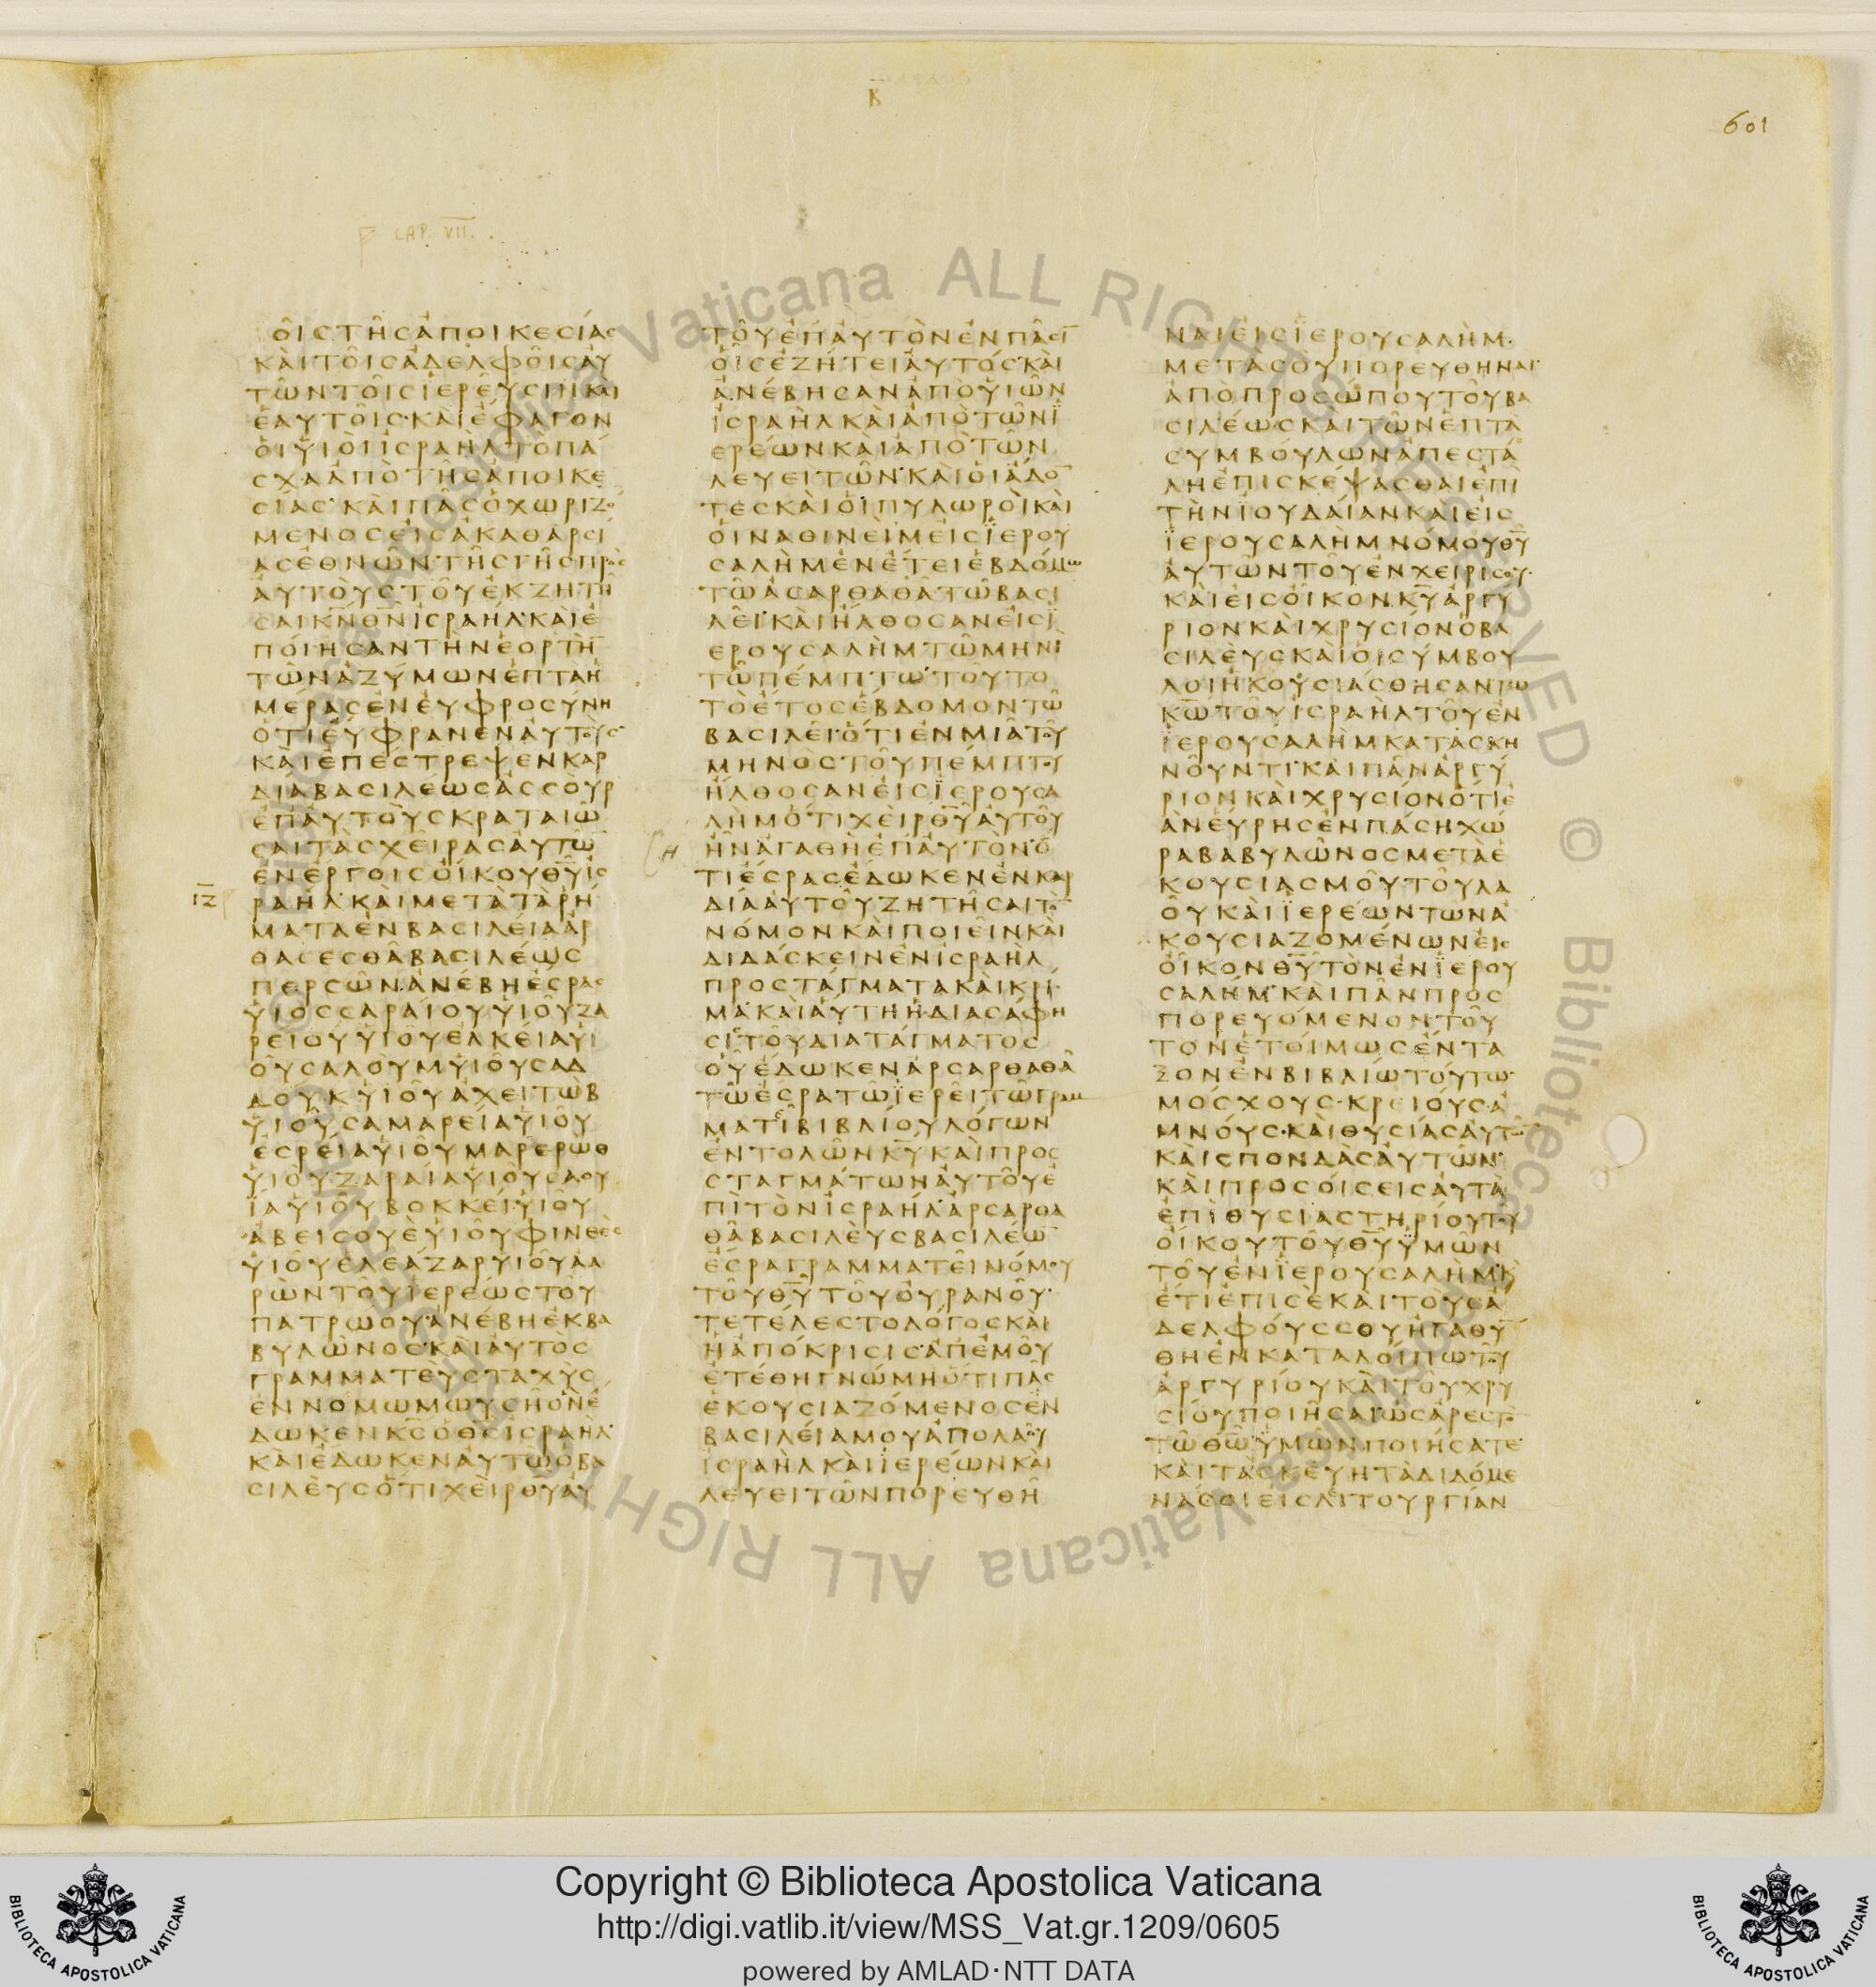 Β
601
CAP. VII.
ΟΙΣΤΗΣΑΠΟΙΚΕΣΙΑΣ
ΚΑΙΤΟΙΣΑΔΕΛΦΟΙΣΑΥ
ΤΩΝΤΟΙΣΙΕΡΕΥΣΙΝΚΑΙ
ΕΑΥΤΟΙΣ·ΚΑΙΕΦΑΓΟΝ
ΟΙΥΙΟΙΙΣΡΑΗΛΤΟΠΑ
ΣΧΑΑΠΟΤΗΣΑΠΟΙΚΕ
ΣΙΑΣ·ΚΑΙΠΑΣΟΧΩΡΙΖΟ
ΜΕΝΟΣΕΙΣΑΚΑΘΑΡΣΙ
ΑΣΕΘΝΩΝΤΗΣΓΗΣΠΡΟΣ
ΑΥΤΟΥΣΤΟΥΕΚΖΗΤΗ
ΣΑΙΚΝΘΝΙΣΡΑΗΛ·ΚΑΙΕ
ΠΟΙΗΣΑΝΤΗΝΕΟΡΤΗ
ΤΩΝΑΖΥΜΩΝΕΠΤΑΗ
ΜΕΡΑΣΕΝΕΥΦΡΟΣΥΝΗ
ΟΤΙΕΥΦΡΑΝΕΝΑΥΤΟΥΣΚΣ
ΚΑΙΕΠΕΣΤΡΕΨΕΝΚΑΡ
ΔΙΑΒΑΣΙΛΕΩΣΑΣΣΟΥΡ
ΕΠΑΥΤΟΥΣΚΡΑΤΑΙΩ
ΣΑΙΤΑΣΧΕΙΡΑΣΑΥΤΩ
ΕΝΕΡΓΟΙΣΟΙΚΟΥΘΥΙΣ
ΙΖ ΡΑΗΛ·ΚΑΙΜΕΤΑΤΑΡΗ
ΜΑΤΑΕΝΒΑΣΙΛΕΙΑΑΡ
ΘΑΣΕΣΘΑΒΑΣΙΛΕΩΣ
ΠΕΡΣΩΝΑΝΕΒΗΕΣΡΑΣ
ΥΙΟΣΣΑΡΑΙΟΥΥΙΟΥΖΑ
ΡΕΙΟΥΥΙΟΥΕΛΚΕΙΑΥΙ
ΟΥΣΑΛΟΥΜΥΙΟΥΣΑΔ
ΔΟΥΚΥΙΟΥΑΧΕΙΤΩΒ
ΥΙΟΥΣΑΜΑΡΕΙΑΥΙΟΥ
ΕΣΡΕΙΑΥΙΟΥΜΑΡΕΡΩΘ
ΥΙΟΥΖΑΡΑΙΑΥΙΟΥΣΑΟΥ
ΙΑΥΙΟΥΒΟΚΚΕΙΥΙΟΥ
ΑΒΕΙΣΟΥΕΥΙΟΥΦΙΝΕΕΣ
ΥΙΟΥΕΛΕΑΖΑΡΥΙΟΥΑΑ
ΡΩΝΤΟΥΙΕΡΕΩΣΤΟΥ
ΠΑΤΡΩΟΥ·ΑΝΕΒΗΕΚΒΑ
ΒΥΛΩΝΟΣ·ΚΑΙΑΥΤΟΣ
ΓΡΑΜΜΑΤΕΥΣΤΑΧΥΣ
ΕΝΝΟΜΩΜΩΥΣΗΟΝΕ
ΔΩΚΕΝΚΣΟΘΣΙΣΡΑΗΛ·
ΚΑΙΕΔΩΚΕΝΑΥΤΩΟΒΑ
ΣΙΛΕΥΣΟΤΙΧΕΙΡΘΥΑΥ
ΤΟΥΕΠΑΥΤΟΝΕΝΠΑΣΙ
ΟΙΣΕΖΗΤΕΙΑΥΤΟΣ·ΚΑΙ
ΑΝΕΒΗΣΑΝΑΠΟΥΙΩΝ
ΙΣΡΑΗΛΚΑΙΑΠΟΤΩΝΙ
ΕΡΕΩΝΚΑΙΑΠΟΤΩΝ
ΛΕΥΕΙΤΩΝ·ΚΑΙΟΙΑΔΟ
ΤΕΣΚΑΙΟΙΠΥΛΩΡΟΙΚΑΙ
ΟΙΝΑΘΙΝΕΙΜΕΙΣΙΕΡΟΥ
ΣΑΛΗΜΕΝΕΤΕΙΕΒΔΟΜΩ
ΤΩΑΣΑΡΘΑΘΑΤΩΒΑΣΙ
ΛΕΙ·ΚΑΙΗΛΘΟΣΑΝΕΙΣΙ
ΕΡΟΥΣΑΛΗΜΤΩΜΗΝΙ
ΤΩΠΕΜΠΤΩ·ΤΟΥΤΟ
ΤΟΕΤΟΣΕΒΔΟΜΟΝΤΩ
ΒΑΣΙΛΕΙ·ΟΤΙΕΝΜΙΑΤΟΥ
ΜΗΝΟΣΤΟΥΠΕΜΠΤΟΥ
ΗΛΘΟΣΑΝΕΙΣΙΕΡΟΥΣΑ
ΛΗΜΟΤΙΧΕΙΡΘΥΑΥΤΟΥ
Η ΗΝΑΓΑΘΗΕΠΑΥΤΟΝ·Ο
ΤΙΕΣΡΑΣΕΔΩΚΕΝΕΝΚΑΡ
ΔΙΑΑΥΤΟΥΖΗΤΗΣΑΙΤΟ
ΝΟΜΟΝΚΑΙΠΟΙΕΙΝΚΑΙ
ΔΙΔΑΣΚΕΙΝΕΝΙΣΡΑΗΛ
ΠΡΟΣΤΑΓΜΑΤΑΚΑΙΚΡΙ
ΜΑ·ΚΑΙΑΥΤΗΗΔΙΑΣΑΦΗ
ΣΙΣΤΟΥΔΙΑΤΑΓΜΑΤΟΣ
ΟΥΕΔΩΚΕΝΑΡΣΑΡΘΑΘΑ
ΤΩΕΣΡΑΤΩΙΕΡΕΙΤΩΓΡΑΜ
ΜΑΤΕΙΒΙΒΛΙΟΥΛΟΓΩΝ
ΕΝΤΟΛΩΝΚΥΚΑΙΠΡΟΣ
ΣΤΑΓΜΑΤΩΝΑΥΤΟΥΕ
ΠΙΤΟΝΙΣΡΑΗΛ·ΑΡΣΑΡΘΑ
ΘΑΒΑΣΙΛΕΥΣΒΑΣΙΛΕΩ
ΕΣΡΑΓΡΑΜΜΑΤΕΙΝΟΜΟΥ
ΤΟΥΘΥΤΟΥΟΥΡΑΝΟΥ·
ΤΕΤΕΛΕΣΤΟΛΟΓΟΣΚΑΙ
ΗΑΠΟΚΡΙΣΙΣ·ΑΠΕΜΟΥ
ΕΤΕΘΗΓΝΩΜΗΟΤΙΠΑΣ
ΕΚΟΥΣΙΑΖΟΜΕΝΟΣΕΝ
ΒΑΣΙΛΕΙΑΜΟΥΑΠΟΛΑΟΥ
ΙΣΡΑΗΛΚΑΙΙΕΡΕΩΝΚΑΙ
ΛΕΥΕΙΤΩΝΠΟΡΕΥΘΗ
ΝΑΙΕΙΣΙΕΡΟΥΣΑΛΗΜ·
ΜΕΤΑΣΟΥΠΟΡΕΥΘΗΝΑΙ·
ΑΠΟΠΡΟΣΩΠΟΥΤΟΥΒΑ
ΣΙΛΕΩΣΚΑΙΤΩΝΕΠΤΑ
ΣΥΜΒΟΥΛΩΝΑΠΕΣΤΑ
ΛΗΕΠΙΣΚΕΨΑΣΘΑΙΕΠΙ
ΤΗΝΙΟΥΔΑΙΑΝΚΑΙΕΙΣ
ΙΕΡΟΥΣΑΛΗΜΝΟΜΟΥΘΥ
ΑΥΤΩΝΤΟΥΕΝΧΕΙΡΙΣΟΥ·
ΚΑΙΕΙΣΟΙΚΟΝΚΥΑΡΓΥ
ΡΙΟΝΚΑΙΧΡΥΣΙΟΝΟΒΑ
ΣΙΛΕΥΣΚΑΙΟΙΣΥΜΒΟΥ
ΛΟΙΗΚΟΥΣΙΑΣΘΗΣΑΝΤΩ
ΚΩΤΟΥΙΣΡΑΗΛΤΟΥΕΝ
ΙΕΡΟΥΣΑΛΗΜΚΑΤΑΣΚΗ
ΝΟΥΝΤΙ·ΚΑΙΠΑΝΑΡΓΥ
ΡΙΟΝΚΑΙΧΡΥΣΙΟΝΟΤΙΕ
ΑΝΕΥΡΗΣΕΝΠΑΣΗΧΩ
ΡΑΒΑΒΥΛΩΝΟΣΜΕΤΑΕ
ΚΟΥΣΙΑΣΜΟΥΤΟΥΛΑ
ΟΥΚΑΙΙΕΡΕΩΝΤΩΝΑ
ΚΟΥΣΙΑΖΟΜΕΝΩΝΕΙΣ
ΟΙΚΟΝΘΥΤΟΝΕΝΙΕΡΟΥ
ΣΑΛΗΜ·ΚΑΙΠΑΝΠΡΟΣ
ΠΟΡΕΥΟΜΕΝΟΝΤΟΥ
ΤΟΝΕΤΟΙΜΩΣΕΝΤΑ
ΞΟΝΕΝΒΙΒΛΙΩΤΟΥΤΩ·
ΜΟΣΧΟΥΣ·ΚΡΕΙΟΥΣ·Α
ΜΝΟΥΣ·ΚΑΙΘΥΣΙΑΣΑΥΤΩ
ΚΑΙΣΠΟΝΔΑΣΑΥΤΩΝ·
ΚΑΙΠΡΟΣΟΙΣΕΙΣΑΥΤΑ
ΕΠΙΘΥΣΙΑΣΤΗΡΙΟΥΤΟΥ
ΟΙΚΟΥΤΟΥΘΥΥΜΩΝ
ΤΟΥΕΝΙΕΡΟΥΣΑΛΗΜ·Κ
ΕΤΙΕΠΙΣΕΚΑΙΤΟΥΣΑ
ΔΕΛΦΟΥΣΣΟΥΗΓΑΘΥ
ΘΗΕΝΚΑΤΑΛΟΙΠΩΤΟΥ
ΑΡΓΥΡΙΟΥΚΑΙΤΟΥΧΡΥ
ΣΙΟΥΠΟΙΗΣΑΙΩΣΑΡΕΣΤΟ
ΤΩΘΩΥΜΩΝΠΟΙΗΣΑΤΕ·
ΚΑΙΤΑΣΚΕΥΗΤΑΔΙΔΟΜΕ
ΝΑΣΟΙΕΙΣΛΙΤΟΥΡΓΙΑΝ
Vaticana ALL RIGHTS RESERVED © Biblioteca Vaticana ALL RIGHT
Copyright © Biblioteca Apostolica Vaticana
http://digi.vatlib.it/view/MSS_Vat.gr.1209/0605
powered by AMLAD·NTT DATA
BIBLIOTECA APOSTOLICA VATICANA
BIBLIOTECA APOSTOLICA VATICANA